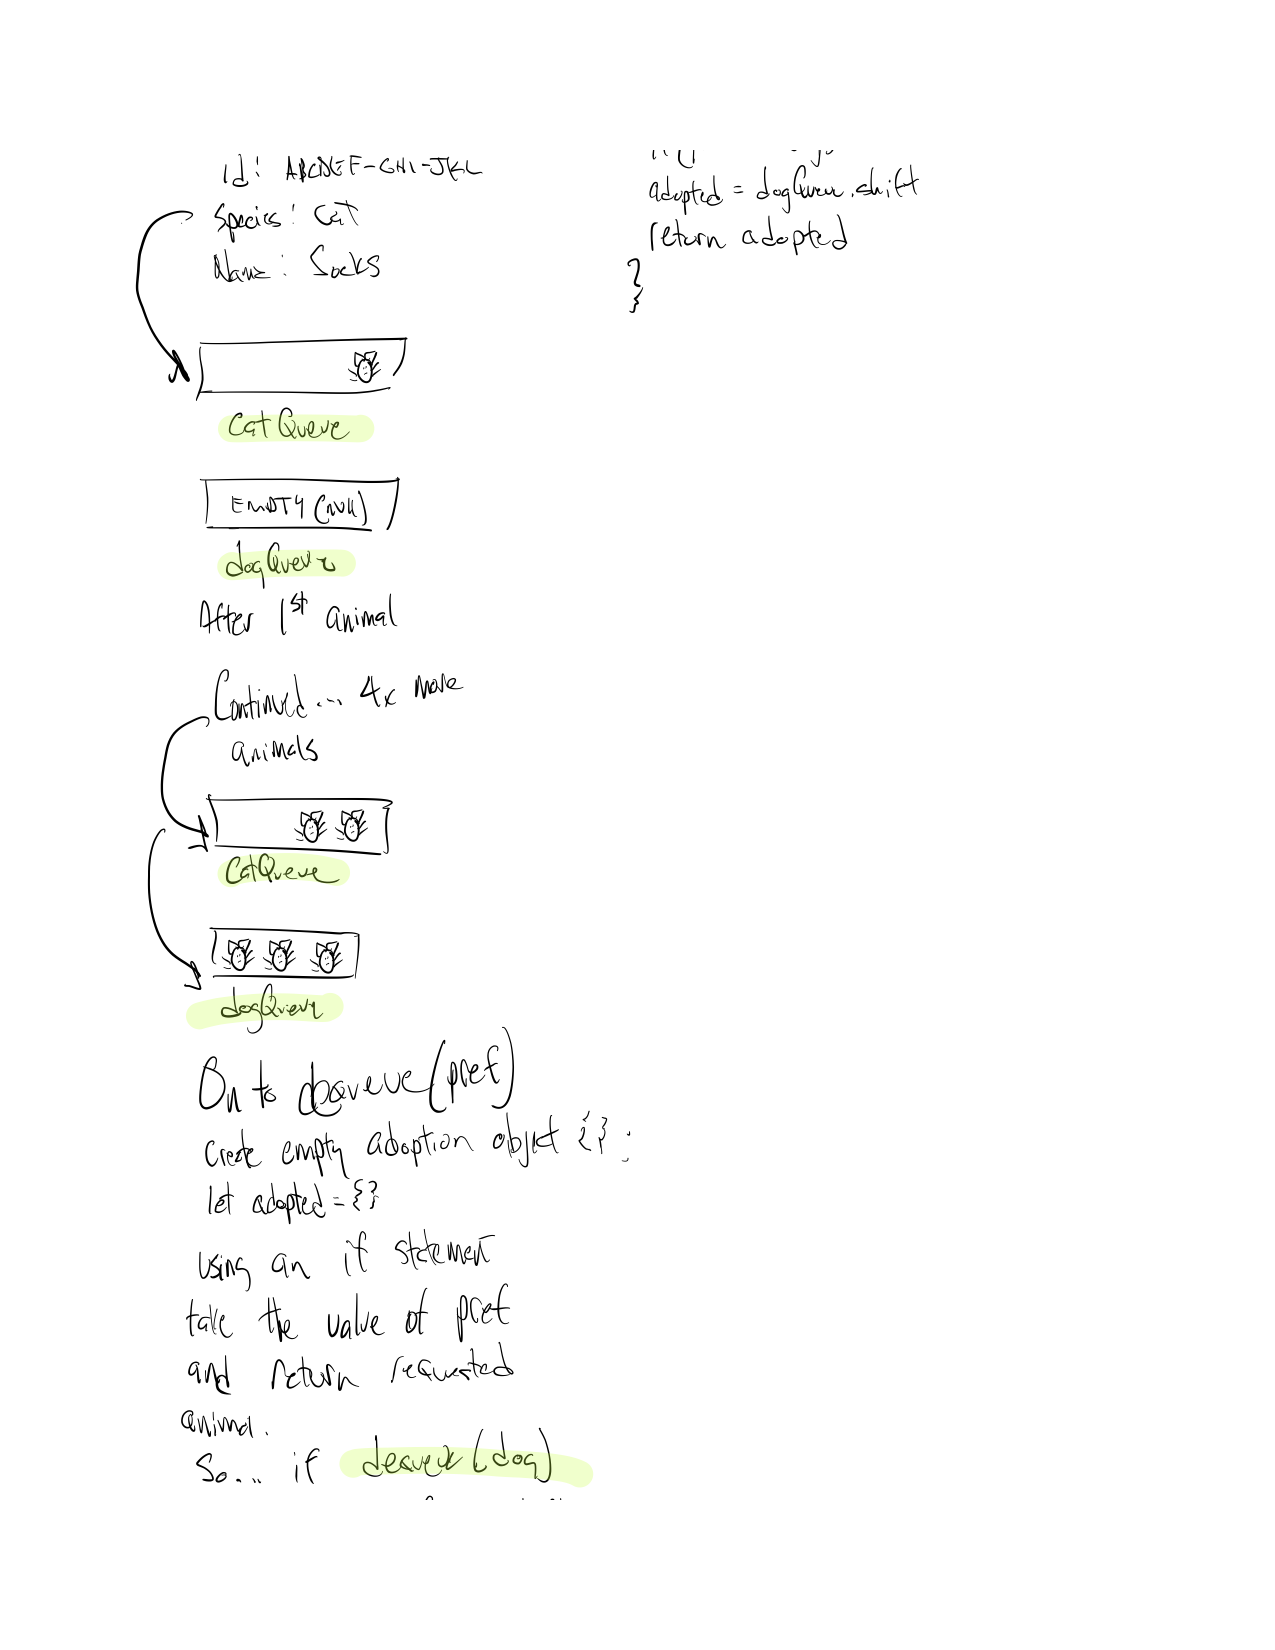 id: ABCDEF-GHI-JKL
Species: Cat
Name: Socks
Cat Queue
EMPTY (null)
dogQueue
After 1st animal
Continued... 4x more
animals
CatQueue
dogQueue
On to dequeue(pref)
Create empty adoption object {};
let adopted = {}
using an if statement
take the value of pref
and return requested
animal.
So... if dequeue(dog)
adopted = dogQueue.shift
return adopted
}